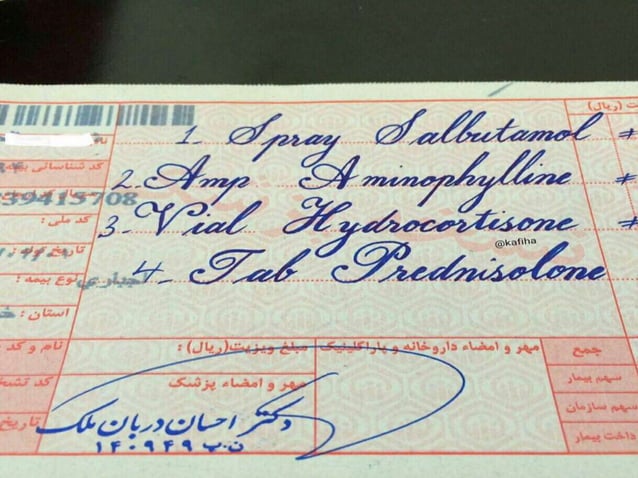 ت (ریال)
1- Spray Salbutamol #
کد شناسائی
2- Amp Aminophylline #
39415708
کد ملی :
3- Vial Hydrocortisone #
@kafiha
4- Tab Prednisolone
نوع بیمه : اجباری
استان :
مهر و امضاء داروخانه و پاراکلینیک
مبلغ ویزیت(ریال) :
جمع
نام و کد
مهر و امضاء پزشک
سهم بیمار
سهم سازمان
دکتر احسان دربان ملک
ن.پ ۱۴۰۹۴۹
تاریخ
داخت بیمار